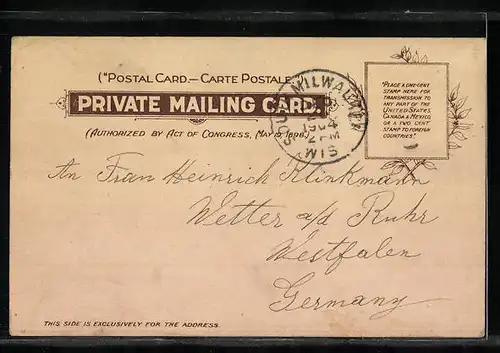 ("POSTAL CARD.—CARTE POSTALE.")
PRIVATE MAILING CARD.
(AUTHORIZED BY ACT OF CONGRESS, MAY 19, 1898.)
SOUTH MILWAUKEE
WIS
"PLACE A ONE-CENT
STAMP HERE FOR
TRANSMISSION TO
ANY PART OF THE
UNITED STATES,
CANADA & MEXICO,
OR A TWO CENT
STAMP TO FOREIGN
COUNTRIES."
An Frau Heinrich Klinkmann
Wetter a/d Ruhr
Westfalen
Germany
THIS SIDE IS EXCLUSIVELY FOR THE ADDRESS.